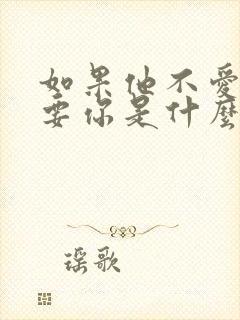 如果他不愛
要你是什麼
瑶歌